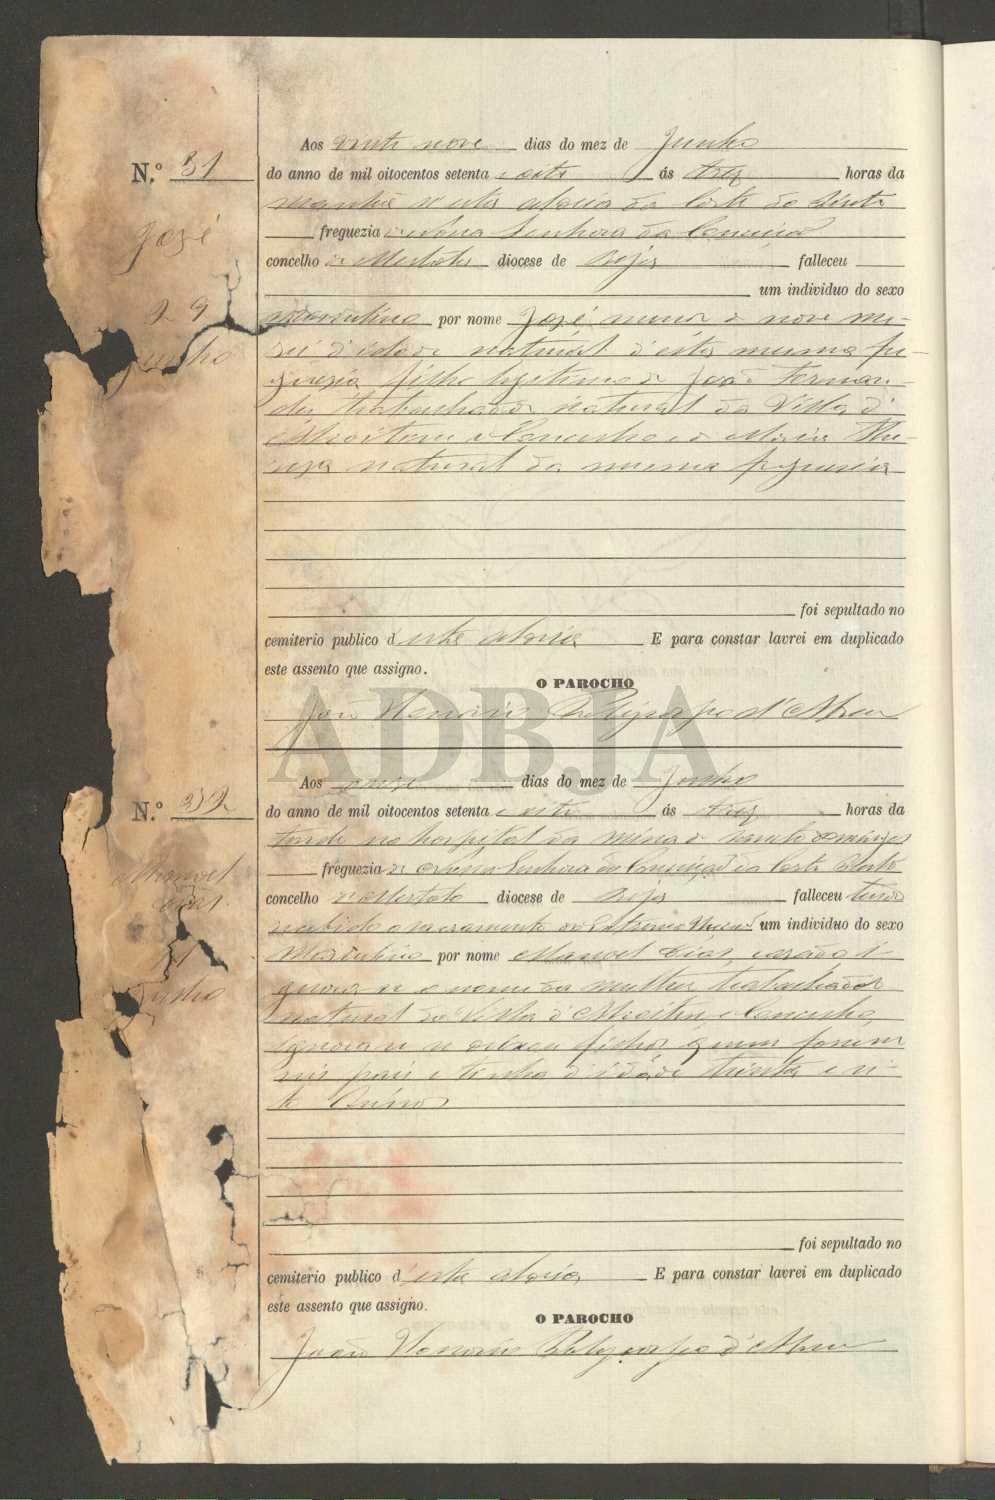 Aos vinte nove dias do mez de Junho
N.º 31
do anno de mil oitocentos setenta e oito ás trez horas da
manhã n'esta aldeia da Corte do Pinto
José
freguezia de Nossa Senhora da Conceição
concelho de Mertola diocese de Beja falleceu
um individuo do sexo
29
masculino por nome José menor de nove me-
Junho
zes d'idade natural d'esta mesma fre-
guezia filho legitimo de José Fernan-
des trabalhador natural da Villa d'
e de Maria The-
reza natural da mesma freguezia
foi sepultado no
cemiterio publico d'esta aldeia E para constar lavrei em duplicado
este assento que assigno.
O PAROCHO
João d'Abreu
ADBJA
Aos onze dias do mez de Junho
N.º 32
do anno de mil oitocentos setenta e oito ás trez horas da
tarde no hospital da mina de São Domingos
Manoel
Dias
freguezia de Nossa Senhora da Conceição da Corte do Pinto
concelho de Mertola diocese de Beja falleceu tendo
recebido o sacramento da Extrema Unção um individuo do sexo
11
Masculino por nome Manoel Dias, casado i-
Junho
gnora-se o nome da mulher trabalhador
natural da Villa d'
ignora-se se deixou filhos e quem foram
seus pais e tinha d'idade trinta e oi-
to annos
foi sepultado no
cemiterio publico d'esta aldeia E para constar lavrei em duplicado
este assento que assigno.
O PAROCHO
João d'Abreu